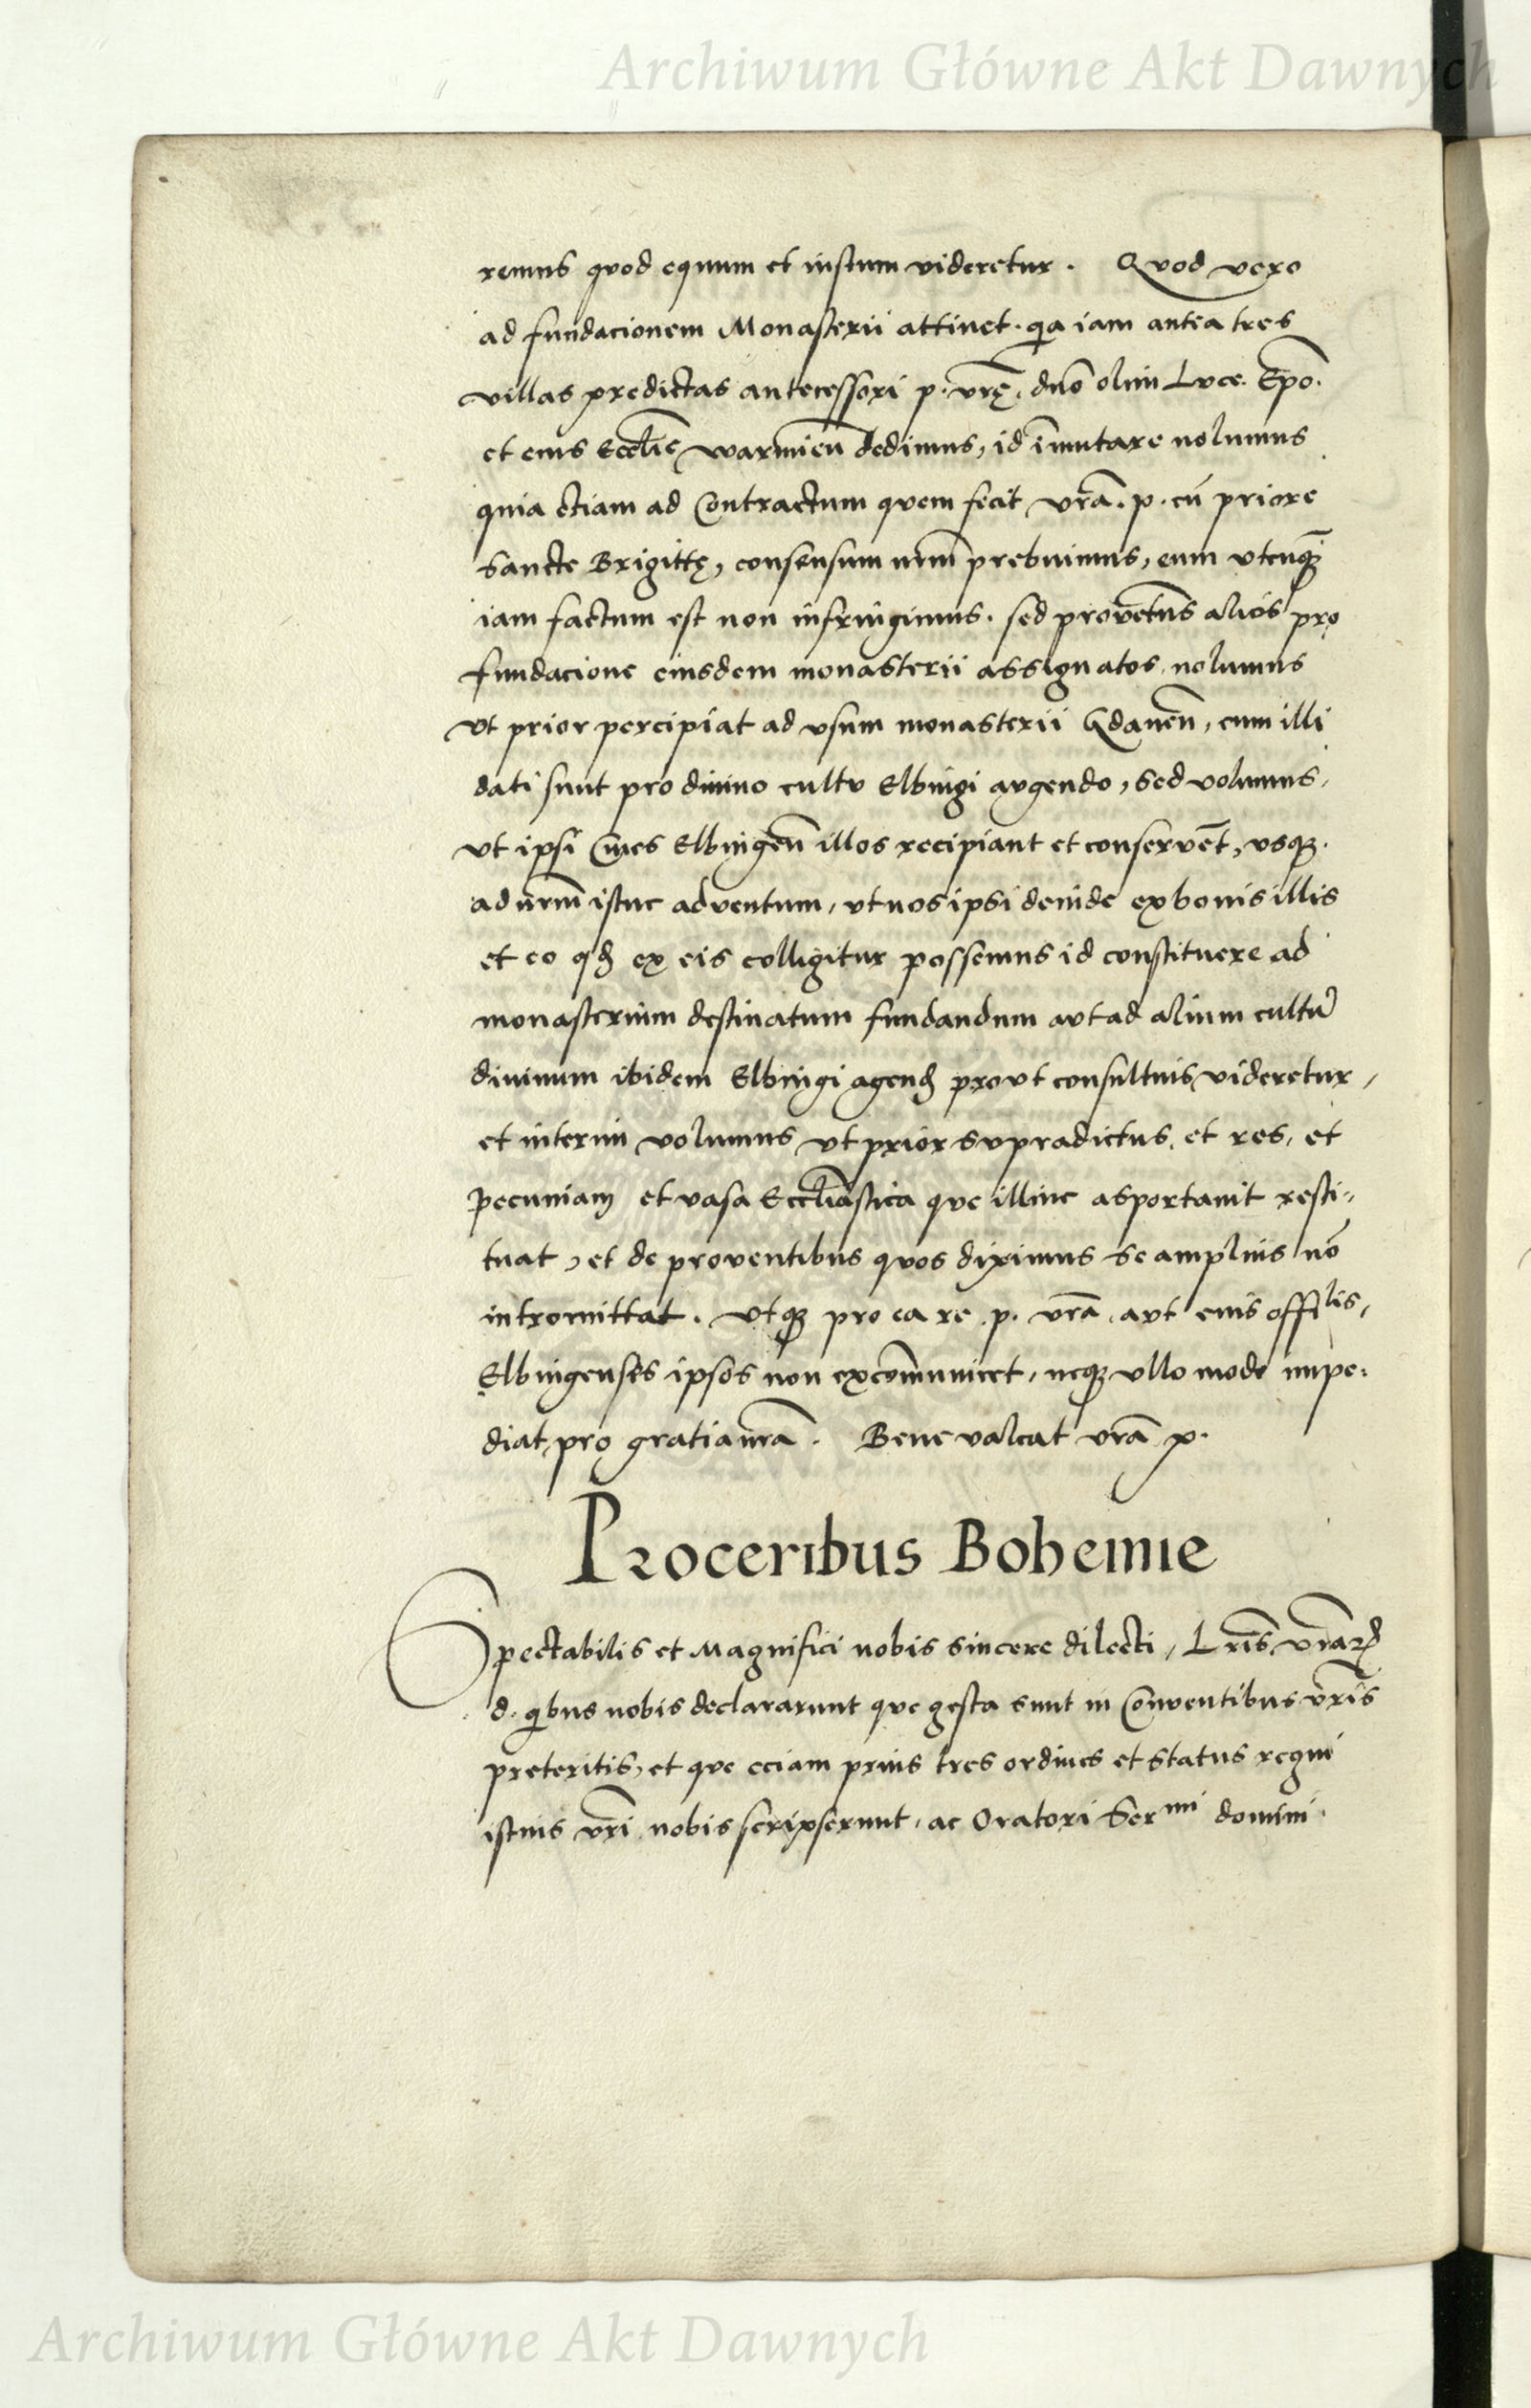 Archiwum Główne Akt Dawnych
remus quod equum et iustum videretur. Quod vero
ad fundacionem Monasterii attinet. qa iam antea tres
villas predictas antecessori p. vrę. dno olim Luce. Epo.
et eius Ecclie warmien dedimus, id imutare nolumus
quia etiam ad Contractum quem fecit vra. p. cu priore
Sancte Brigittę, consensum nrm prebuimus, eum utcuqꝫ
iam factum est non infringimus. sed proventus alios pro
fundacione eiusdem monasterii assignatos nolumus
vt prior percipiat ad vsum monasterii Gdanen, cum illi
dati sunt pro divino cultu Elbingi augendo, sed volumus,
vt ipsi Cives Elbingen illos recipiant et conservet, usqꝫ.
ad nrm istuc adventum, ut nos ipsi deinde ex bonis illis
et eo qđ ex eis colligitur possemus id constituere ad
monasterium destinatum fundandum aut ad alium cultu
divinum ibidem Elbingi agend prout consultius videretur,
et interim volumus ut prior supradictus, et res, et
pecuniam et vasa Eccliastica que illinc asportavit resti-
tuat, et de proventibus quos diximus se amplius no
intromittat. Utqꝫ pro ea re p. vra. aut eius offilis,
Elbingenses ipsos non excommunicet, neqꝫ ullo modo impe-
diat pro gratia nra. Bene valeat vra p.
Proceribus Bohemie
Spectabilis et Magnifici nobis sincere dilecti, Lris vrarꝝ
d. qibus nobis declararunt que gesta sunt in Conventibus vris
preteritis, et que eciam prius tres ordines et status regni
istius vri nobis scripserunt, ac Oratori Sermi domini
Archiwum Główne Akt Dawnych